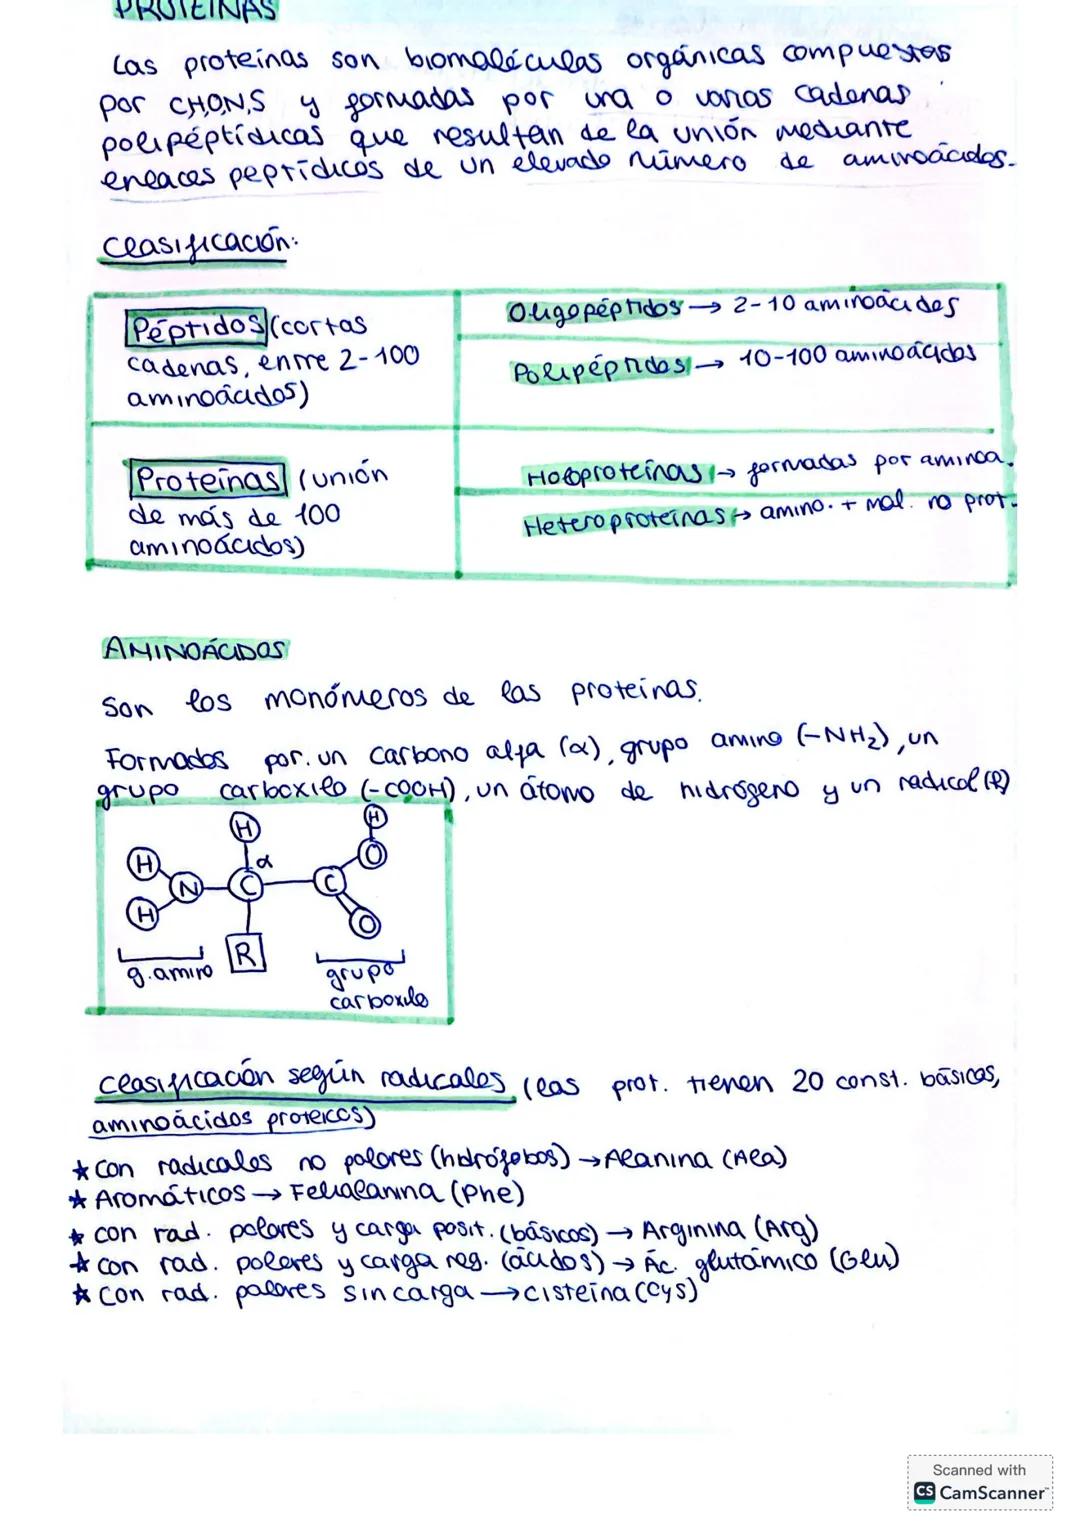 PROTEINAS
Las proteínas son biomoléculas orgánicas compuestas
por C,H,O,N,S y formadas por una o varias cadenas
polipéptídicas que resultan de la unión mediante
enlaces peptídicos de un elevado número de aminoácidos.
Clasificación:
Péptidos (cortas
cadenas, entre 2-100
aminoácidos)
Oligopéptidos → 2-10 aminoácidos
Polipéptidos → 10-100 aminoácidos
Proteínas (unión
de más de 100
aminoácidos)
Holoproteínas → formadas por aminoa.
Heteroproteínas → amino. + mol. no prot.
AMINOÁCIDOS
Son los monómeros de las proteínas.
Formados por un carbono alfa (α), grupo amino (-NH₂), un
grupo carboxilo (-COOH), un átomo de hidrógeno y un radical (R)
H H
H α O
N C C
H O
R
g.amino grupo
carboxilo
Clasificación según radicales (las prot. tienen 20 const. básicas,
aminoácidos proteicos)
★ Con radicales no polares (hidrófobos) → Alanina (Ala)
★ Aromáticos → Fenilalanina (Phe)
★ con rad. polares y carga posit. (básicos) → Arginina (Arg)
★ con rad. polares y carga neg. (ácidos) → Ác. glutámico (Glu)
★ Con rad. polares sin carga → cisteína (Cys)
Scanned with
CS CamScanner